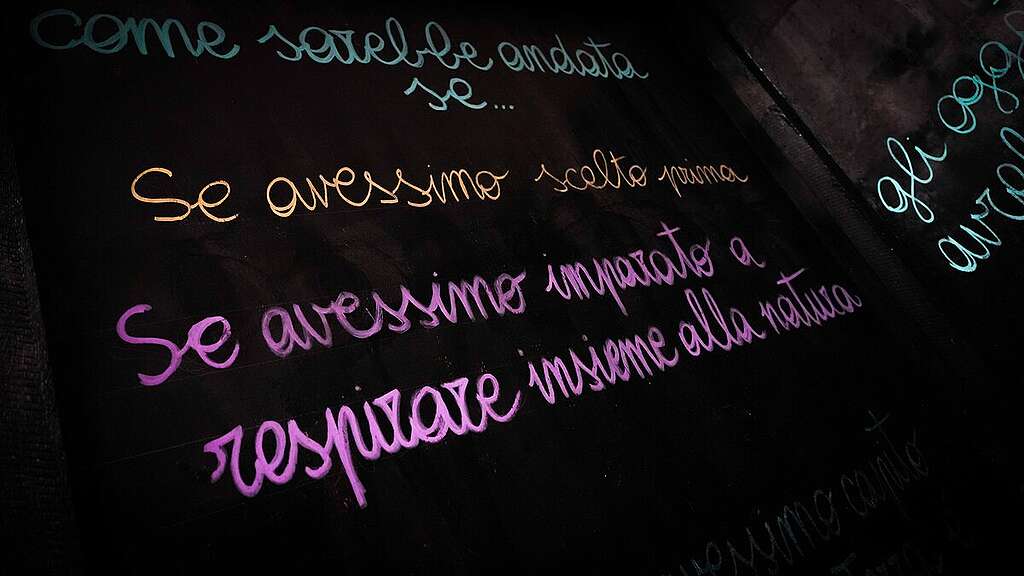 come sarebbe andata
se...
Se avessimo scelto prima
Se avessimo imparato a
respirare insieme alla natura
avessimo capito
gli